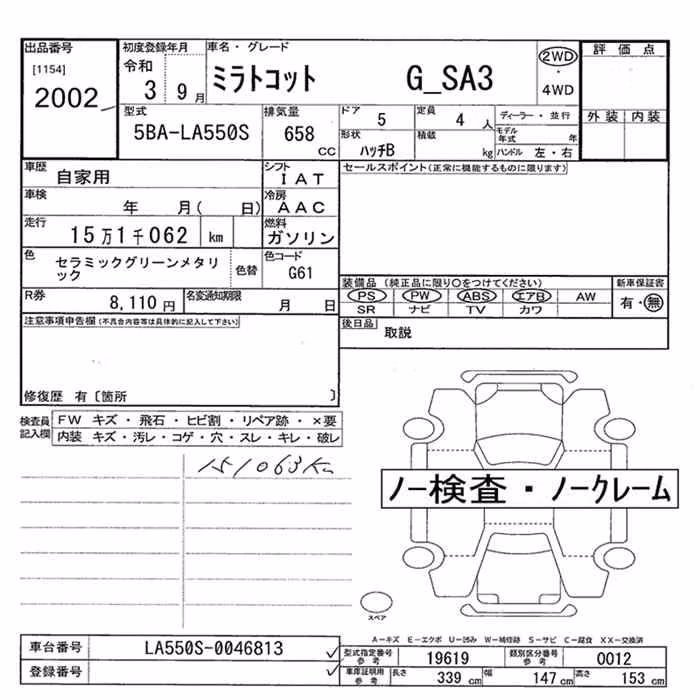 出品番号
[1154]
2002
初度登録年月
令和
3 9月
車名・グレード
ミラトコット G_SA3
2WD
・
4WD
評価点
外装 内装
型式
5BA-LA550S
排気量
658
CC
ドア
5
定員
4 人
ディーラー・並行
形状
ハッチB
積載
kg
モデル年式 年
ハンドル 左・右
車歴
自家用
シフト
IAT
車検
年 月( 日)
冷房
AAC
走行
15万1千062 km
燃料
ガソリン
色
セラミックグリーンメタリ
ック
色替
色コード
G61
R券
8,110 円
名変通知期限
月 日
セールスポイント(正常に機能するものに限ります)
装備品 (純正品に限り○をつけてください)
PS PW ABS エアB AW
SR ナビ TV カワ
新車保証書
有・無
後日品
取説
注意事項申告欄(不具合内容等は具体的に記入して下さい)
修復歴 有〔箇所 〕
検査員
記入欄
FW キズ・飛石・ヒビ割・リペア跡・×要
内装 キズ・汚レ・コゲ・穴・スレ・キレ・破レ
151063Km
ノー検査・ノークレーム
スペア
A-キズ E-エクボ U-凹み W-補修跡 S-サビ C-腐食 XX-交換済
車台番号
LA550S-0046813
登録番号
型式指定番号
参考
19619
類別区分番号
参考
0012
車庫証明用
参考
長さ
339 cm
幅
147 cm
高さ
153 cm